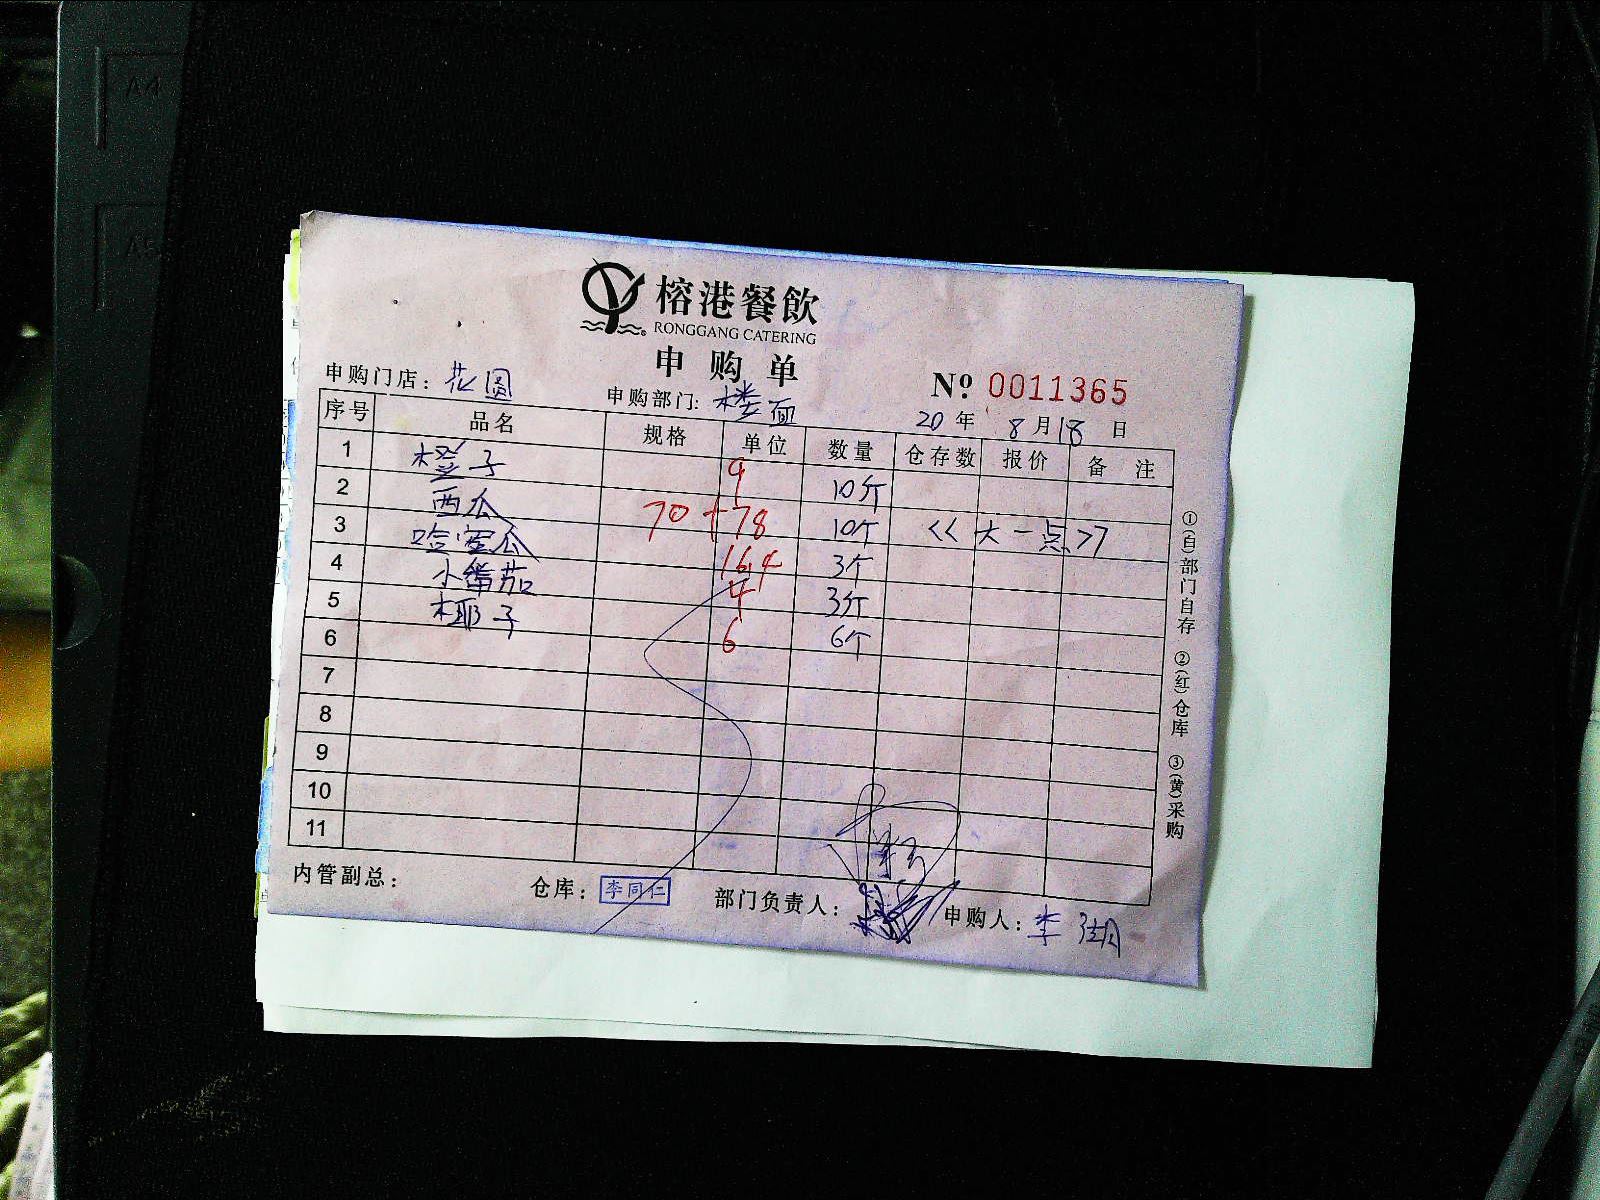 A4
A5
榕港餐飲
RONGGANG CATERING
申购单
申购门店：花圆 申购部门：楼面 Nº 0011365
20年 8月18日
序号 品名 规格 单位 数量 仓存数 报价 备注
1 橙子 9 10斤
2 西瓜 70+78 10个 <<大一点>>
3 哈密瓜 16.4 3个
4 小番茄 4 3斤
5 椰子 6 6个
6
7
8
9
10
11
内管副总： 仓库：李同仁 部门负责人： 申购人：李湖
①(白)部门自存 ②(红)仓库 ③(黄)采购